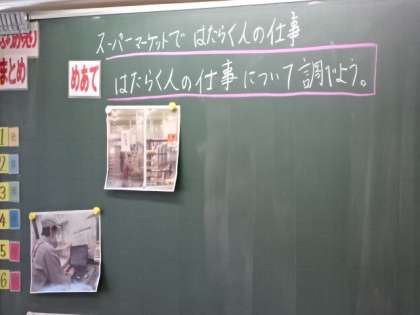 スーパーマーケットで はたらく人の仕事
めあて
はたらく人の仕事について調べよう。
まとめ
1
2
3
4
5
6